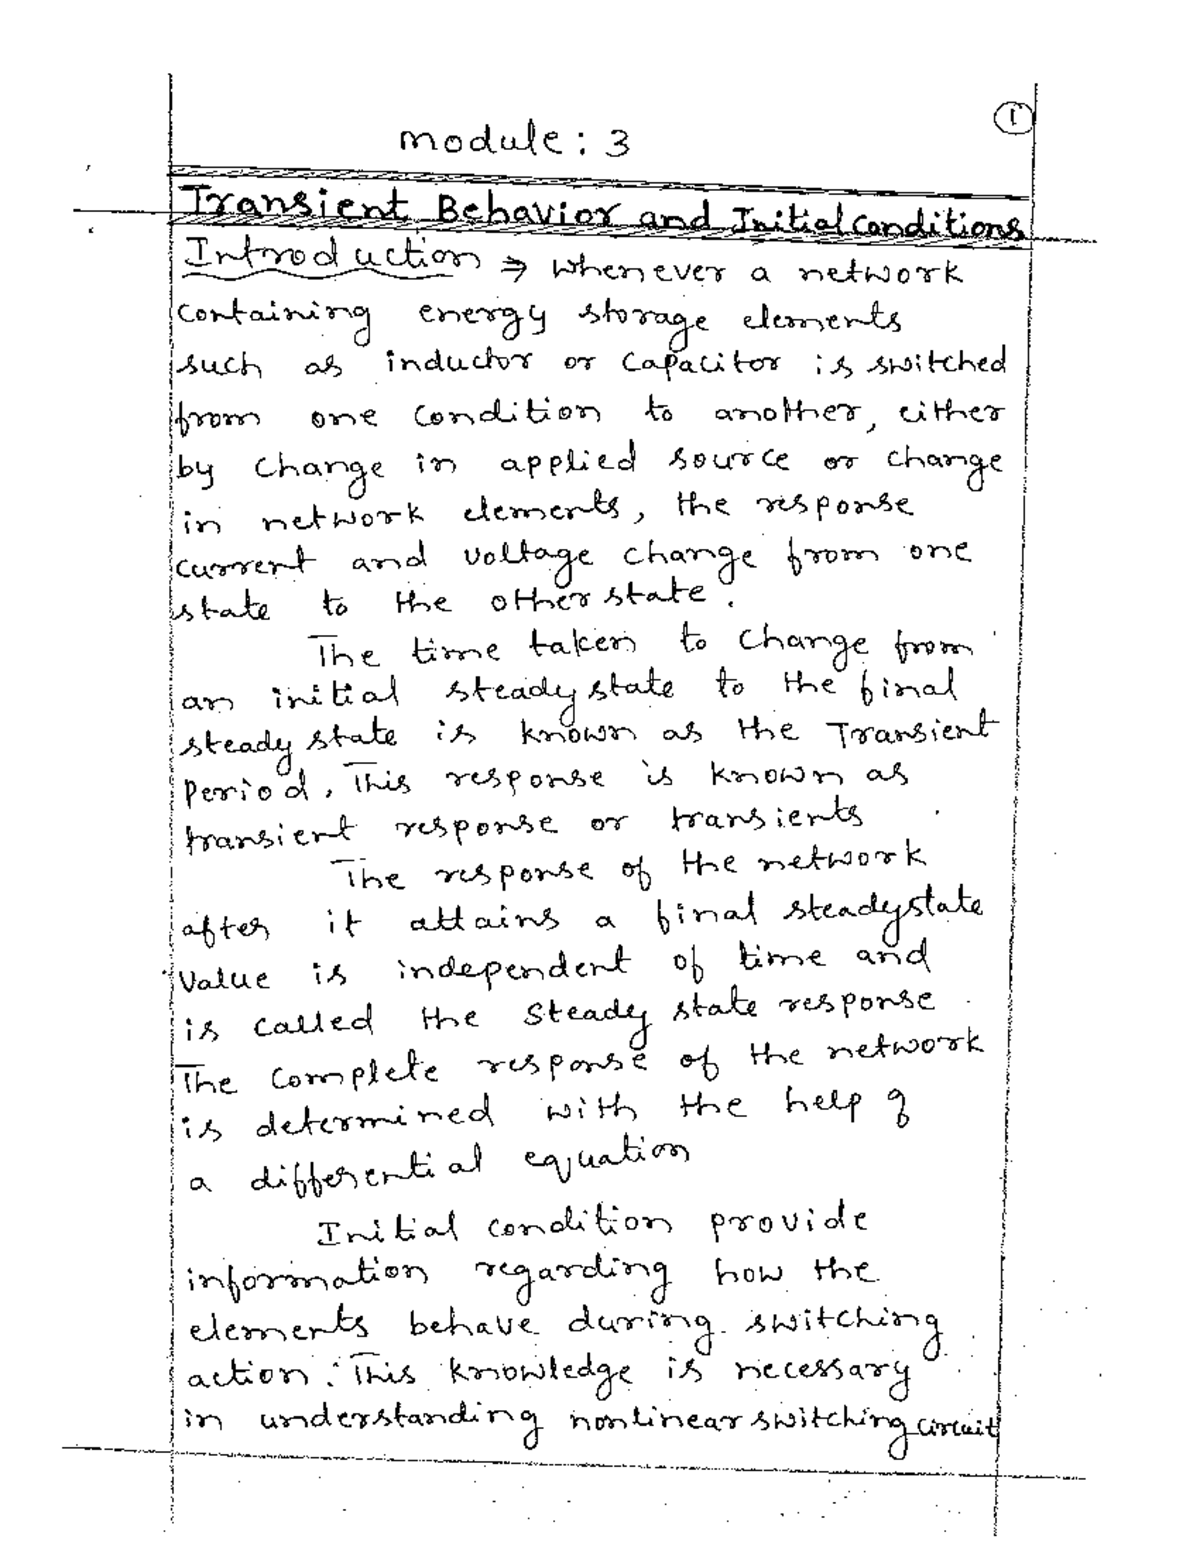 1
module : 3
Transient Behavior and Initial Conditions
Introduction ⇒ Whenever a network
containing energy storage elements
such as inductor or capacitor is switched
from one condition to another, either
by change in applied source or change
in network elements, the response
current and voltage change from one
state to the other state.
The time taken to change from
an initial steady state to the final
steady state is known as the Transient
Period. This response is known as
transient response or transients
The response of the network
after it attains a final steady state
value is independent of time and
is called the steady state response
The complete response of the network
is determined with the help of
a differential equation
Initial condition provide
information regarding how the
elements behave during switching
action. This knowledge is necessary
in understanding nonlinear switching circuit